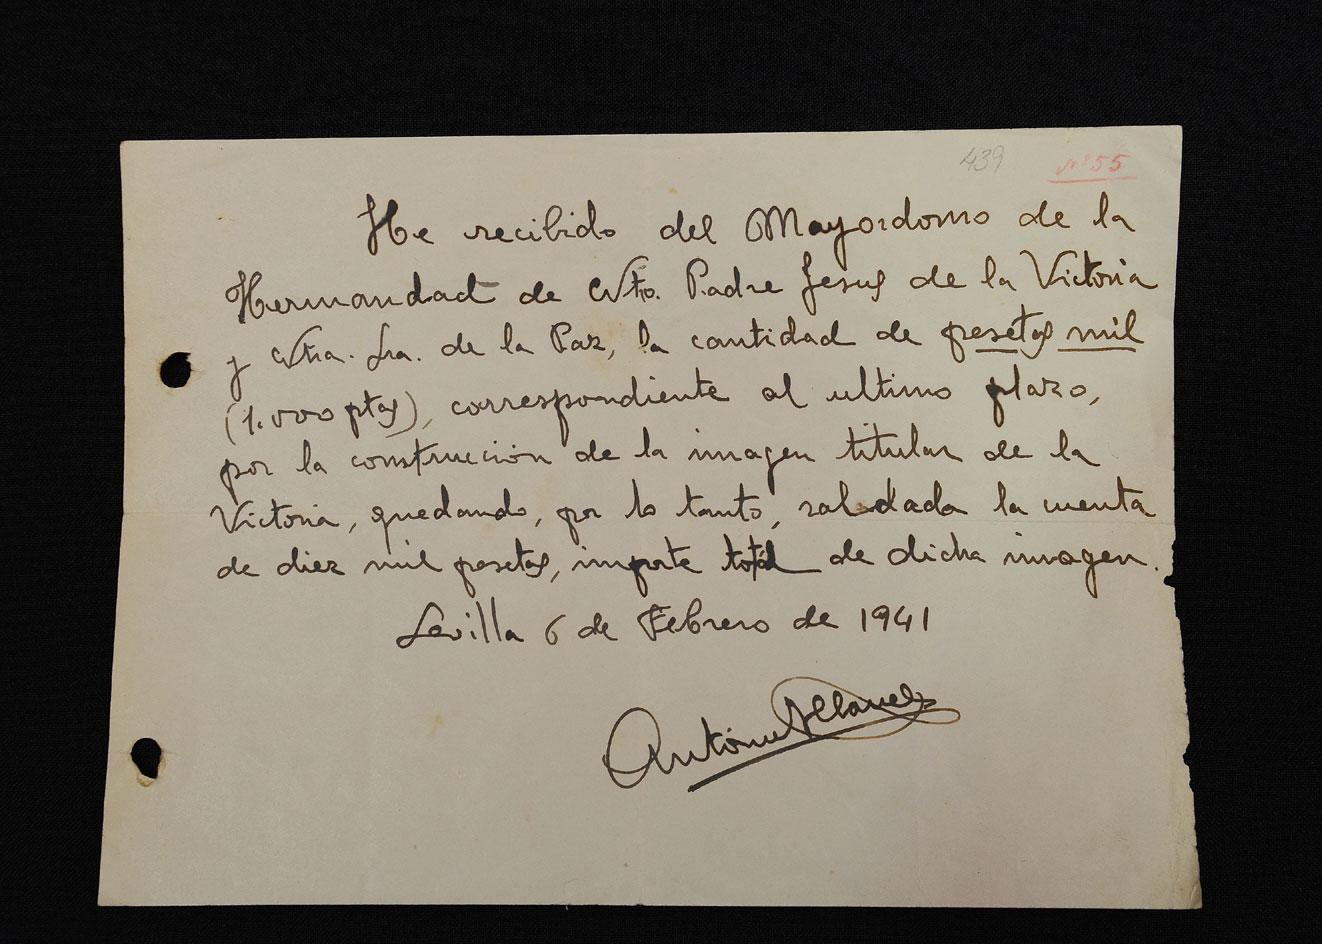 439 Nº 55
He recibido del Mayordomo de la
Hermandad de Ntro. Padre Jesus de la Victoria
y Ntra. Sra. de la Paz, la cantidad de pesetas mil
(1.000 ptas), correspondiente al ultimo plazo,
por la construcción de la imagen titular de la
Victoria, quedando, por lo tanto, saldada la cuenta
de diez mil pesetas, importe total de dicha imagen.
Sevilla 6 de Febrero de 1941
Antonio Illanes